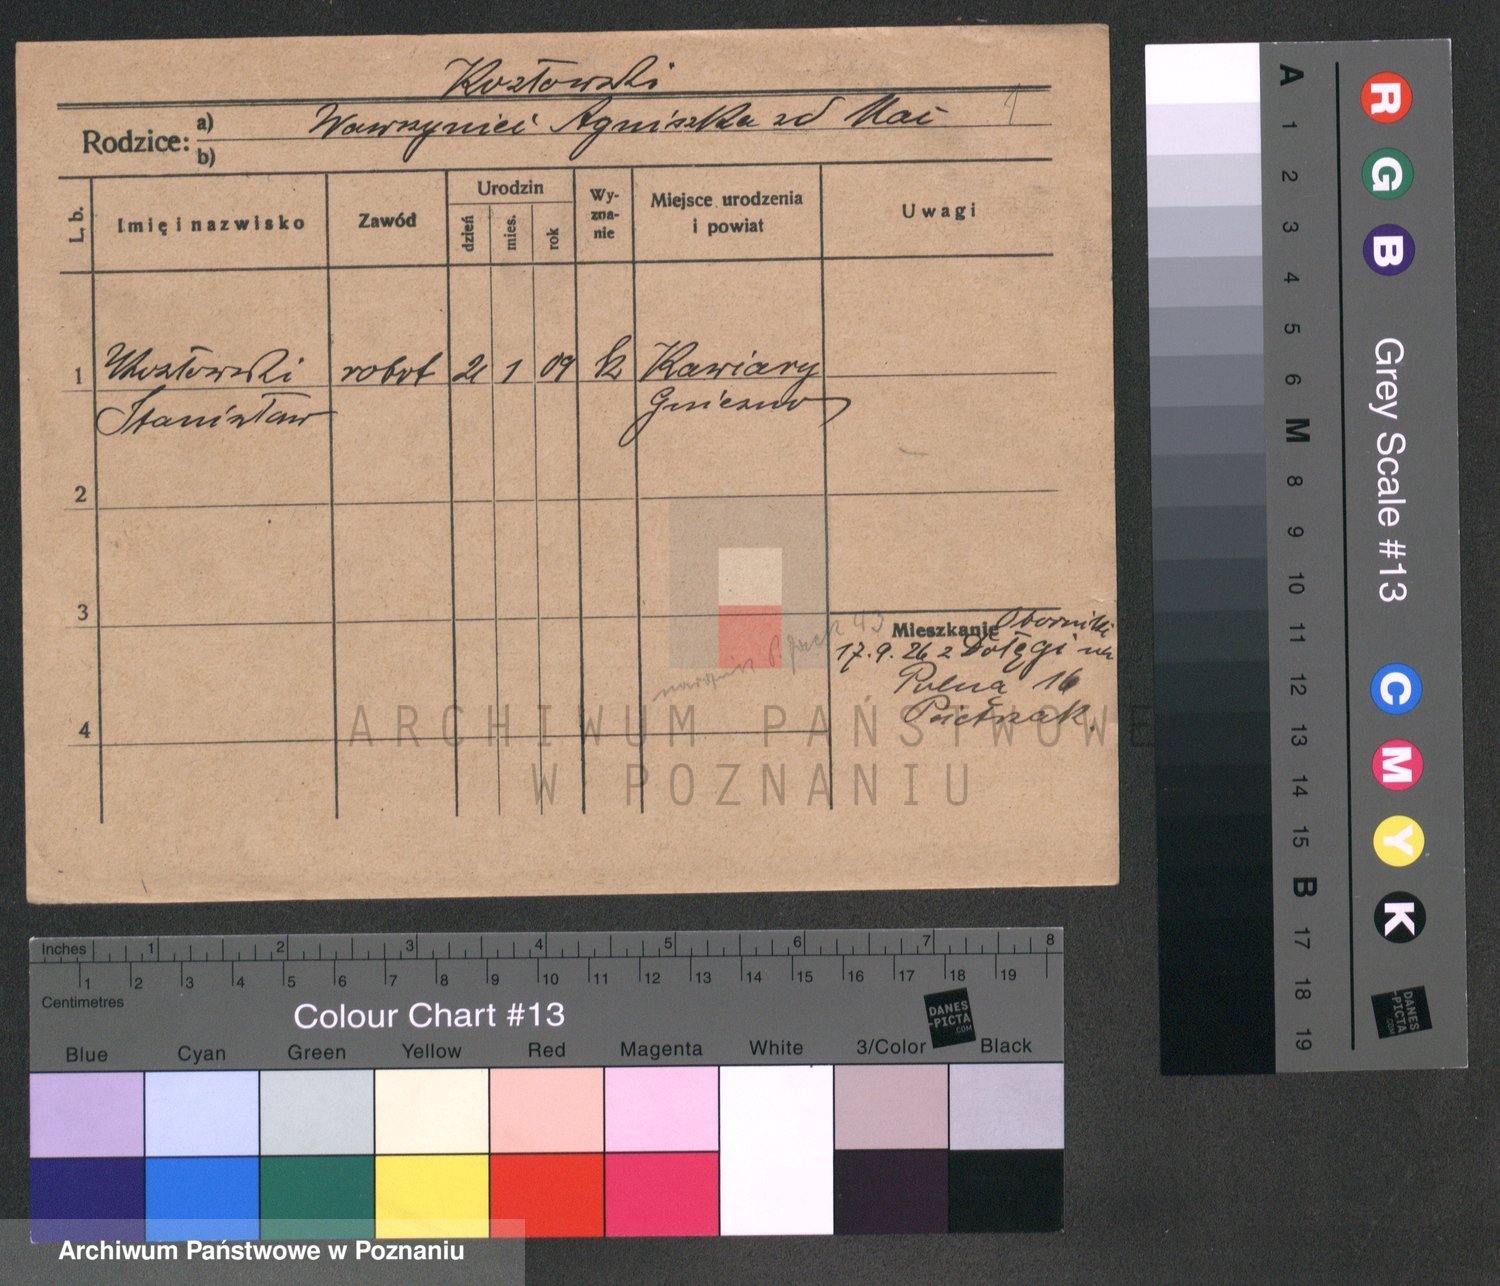 Kozłowski
Rodzice: a) Wawrzyniec Agnieszka zd
b)
L. b.
Imię i nazwisko
Zawód
Urodzin
dzień
mies.
rok
Wy-
zna-
nie
Miejsce urodzenia
i powiat
Uwagi
1 Kozłowski robot 21 1 09 k Kawiary
Stanisław Gniezno
2
3
4
Mieszkanie Oborniki
17.9.26 z
16
ARCHIWUM PAŃSTWOWE
W POZNANIU
A 1 2 3 4 5 6 M 8 9 10 11 12 13 14 15 B 17 18 19
R G B
Grey Scale #13
C M Y K
DANES
-PICTA
.COM
Inches 1 2 3 4 5 6 7 8
1 2 3 4 5 6 7 8 9 10 11 12 13 14 15 16 17 18 19
Centimetres
Colour Chart #13
DANES
-PICTA
.COM
Blue Cyan Green Yellow Red Magenta White 3/Color Black
Archiwum Państwowe w Poznaniu